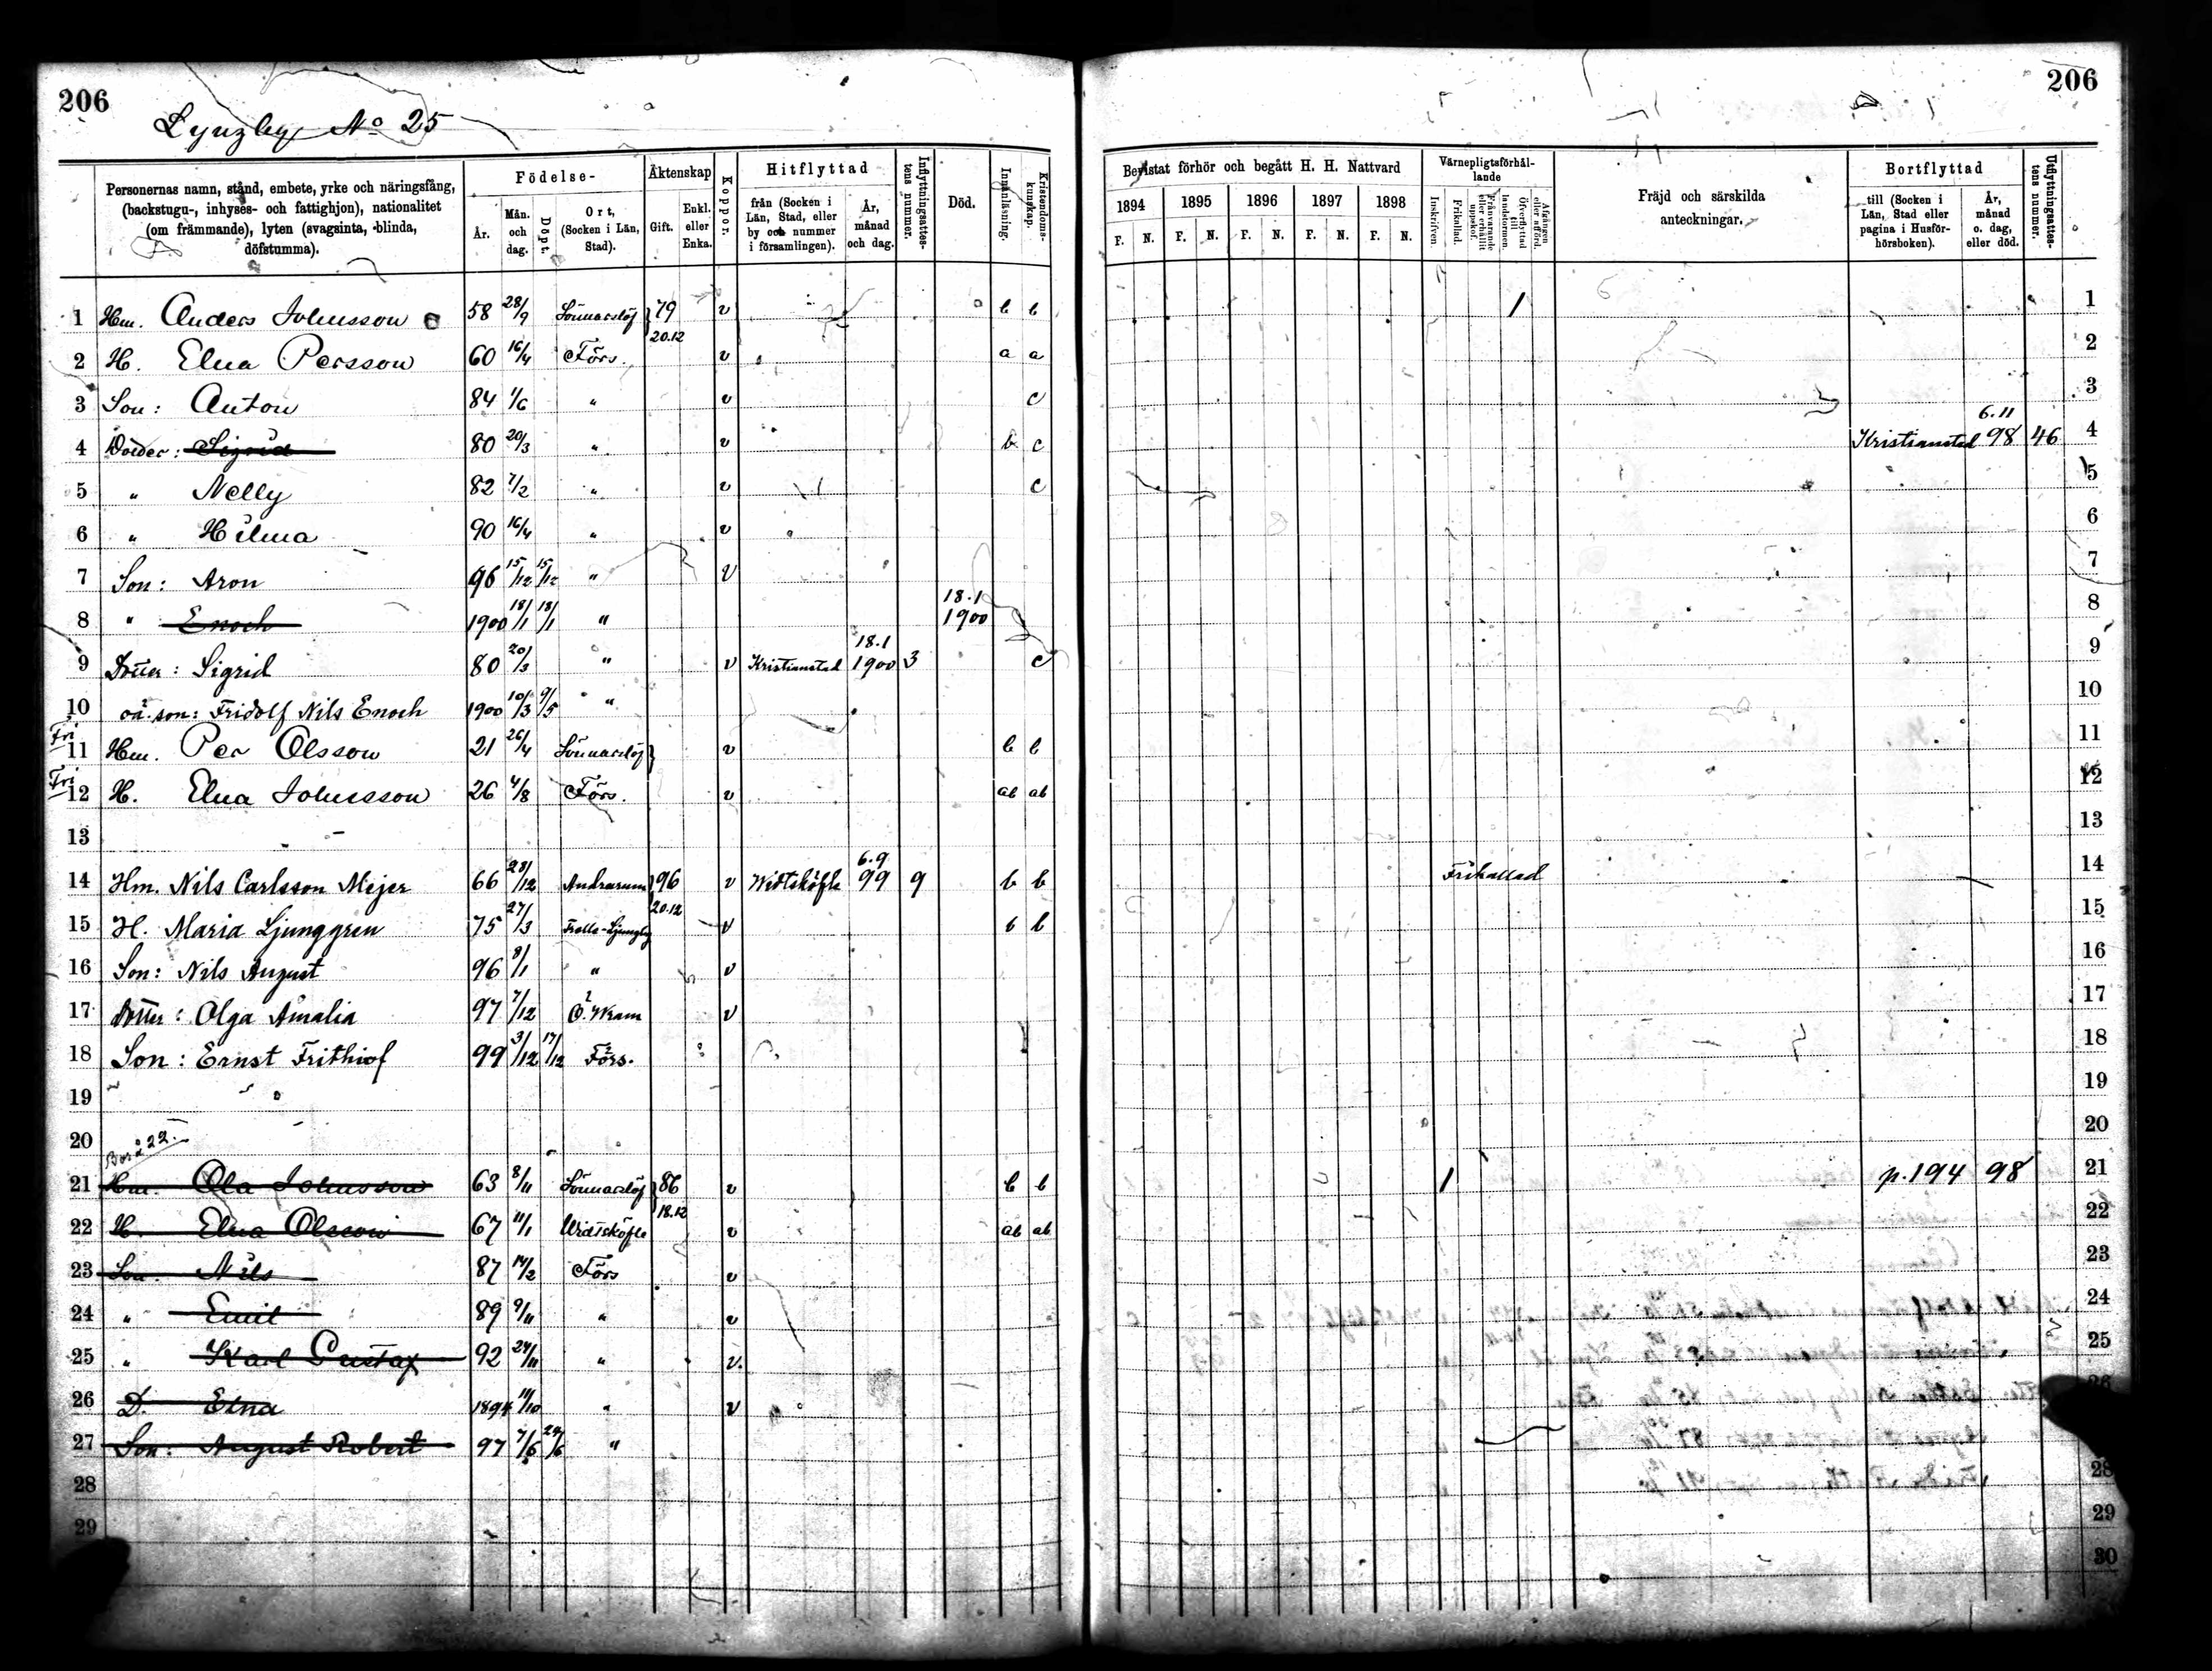 206
206
Lyngby No 25
Personernas namn, stånd, embete, yrke och näringsfång, (backstugu-, inhyses- och fattighjon), nationalitet (om främmande), lyten (svagsinta, blinda, döfstumma).
Födelse-
År.
Mån. och dag.
Döpt.
Ort, (Socken i Län, Stad).
Äktenskap
Gift.
Enkl. eller Enka.
Koppor.
Hitflyttad
från (Socken i Län, Stad, eller by och nummer i församlingen).
År, månad och dag.
Inflyttningsattestens nummer.
Död.
Innanläsning.
Kristendomskunskap.
Bevistat förhör och begått H. H. Nattvard
1894 1895 1896 1897 1898
F. N. F. N. F. N. F. N. F. N.
Värnepligtsförhållande
Inskrifven.
Frikallad.
Frånvarande eller erhållit uppskof.
Öfverflyttad till landstormen.
Afgången eller afförd.
Fräjd och särskilda anteckningar.
Bortflyttad
till (Socken i Län, Stad eller pagina i Husförhörsboken).
År, månad o. dag, eller död.
Utflyttningsattestens nummer.
1 Hm. Anders Johnsson 58 28/9 Lönnarslöf 79 v b b / 1
20.12
2 H. Elna Persson 60 16/4 Förs. v a a 2
3 Son: Anton 84 1/6 " v c 3
6.11
4 Dotter: Sigrid 80 20/3 " v b c Kristianstad 98 46 4
5 " Nelly 82 7/2 " v c 5
6 " Hilma 90 16/4 " v 6
7 Son: Aron 96 15/12 15/12 " v 7
18.1
8 " Enoch 1900 18/1 18/1 " 1900 8
18.1
9 Dotter: Sigrid 80 20/3 " v Kristianstad 1900 3 c 9
10 oä. son: Fridolf Nils Enoch 1900 10/3 9/5 " 10
Fri
11 Hm. Per Olsson 21 26/4 Lönnarslöf v b b 11
Fri
12 H. Elna Johnsson 26 4/8 Förs. v ab ab 12
13 13
6.9
14 Hm. Nils Carlsson Mejer 66 28/12 Andrarum 96 v Widtsköfle 99 9 b b Frikallad 14
20.12
15 H. Maria Ljunggren 75 27/3 Trolle-Ljungby v b b 15
16 Son: Nils August 96 8/1 " v 16
17 Dotter: Olga Amalia 97 7/12 Ö. Wram v 17
18 Son: Ernst Frithiof 99 3/12 17/12 Förs. 18
19 19
20 20
Bor å 22.
21 Hm. Ola Johnsson 63 8/11 Lönnarslöf 86 v b b / p. 194 98 21
18.12
22 H. Elna Olsson 67 11/1 Widtsköfle v ab ab 22
23 Son Nils 87 14/2 Förs v 23
24 " Emil 89 9/11 " v 24
25 " Karl Gustaf 92 24/11 " v. 25
26 D. Elna 1894 14/10 " v 26
27 Son: August Robert 97 7/6 24/6 "
28 28
29 29
30